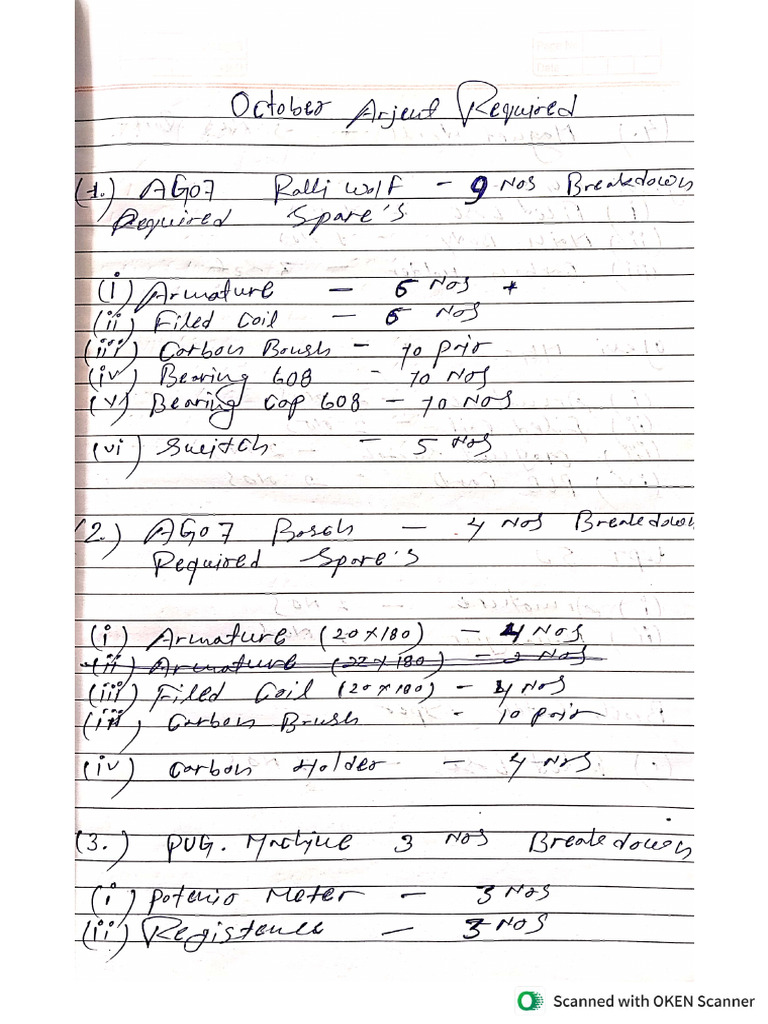 October Arjent Required
(1.) AG07 Ralli Wolf - 9 Nos Breakdown
Required Spare's
(i) Armature - 6 Nos *
(ii) Filed Coil - 6 Nos
(iii) Carbon Boush - 10 Prir
(iv) Bearing 608 - 10 Nos
(v) Bearing Cap 608 - 10 Nos
(vi) Sweitch - 5 Nos
(2.) AG07 Bosch - 4 Nos Breakdown
Required Spare's
(i) Armature (20x180) - 4 Nos
(ii) Armature (22x180) - 2 Nos
(iii) Filed Coil (20x180) - 4 Nos
(iii) Carbon Brush - 10 Prir
(iv) Carbon Holder - 4 Nos
(3.) PUG. Machine 3 Nos Breakdown
(i) Potenio Meter - 3 Nos
(ii) Registence - 3 Nos
Scanned with OKEN Scanner